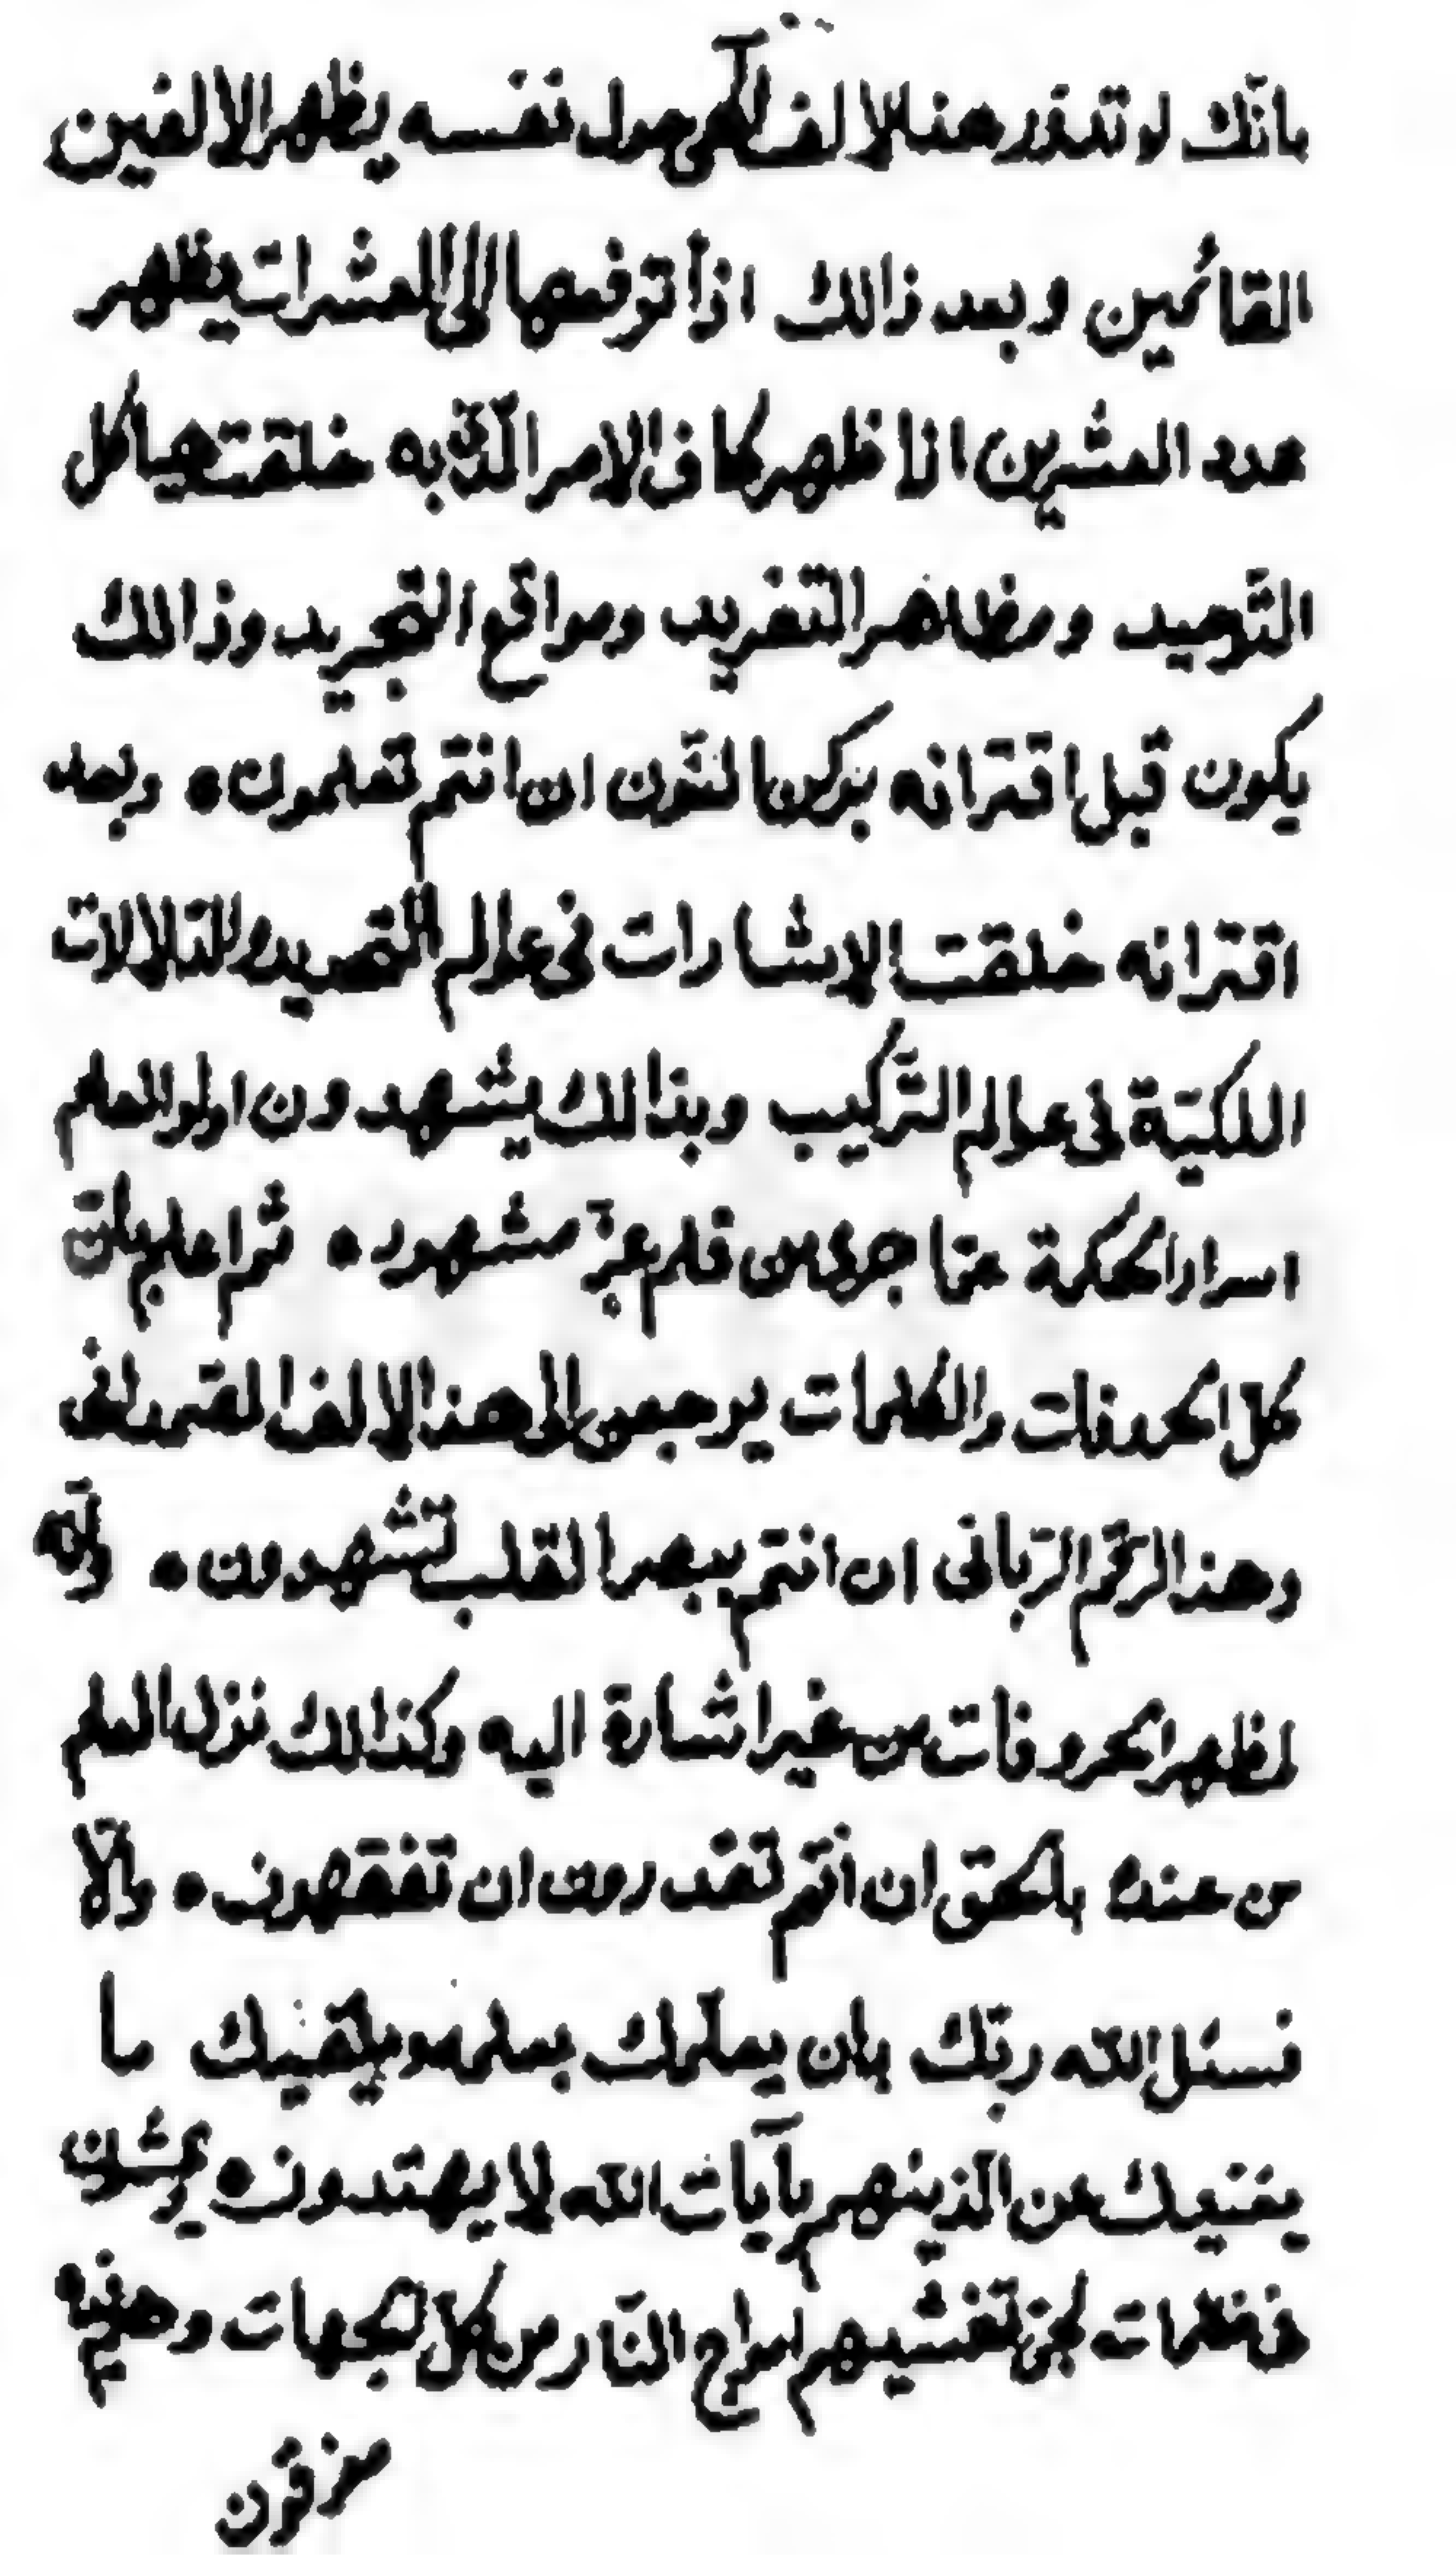 بانّك لو تدوّر هذا الالف الٓهى حول نفسه يظهر الالفين
القائمين و بعد ذالك اذا ترفعها الى العشرات يظهر
عدد العشرين اذا ظهر كاف الامر الّذى به خلقت هياكل
التّوحيد و مظاهر التّفريد و مواقع التّجريد و ذالك
يكون قبل اقترانه بركن النّون ان انتم تعلمون ه و بعد
اقترانه خلقت الاشارات فى عوالم التّحديد و الدّلالات
الملكيّة فى عوالم التّركيب و بذالك يشهدون اولو العلم
اسرار الحكمة عمّا جرى من قلم عزّ مشهود ه ثم اعلم بانّ
كلّ الحروفات و الكلمات يرجعن الى هذا الالف
و هذا الرّقم الرّبانى ان انتم ببصر القلب تشهدون ه و انّه
لمظهر الحروفات من غير اشارة اليه و كذالك نزل العلم
من عنده بالحقّ ان انتم تقدرون ان تفقهون ه و الّا
نسئل الله ربّك بان يعلّمك بعلمه و يلقنيك ما
يغنيك عن الّذينهم بآيات الله لا يهتدون ه يمشون
فى ظلمات لجّى تغشيهم امواج النّار من كلّ الجهات و هم فيه
مغرقون